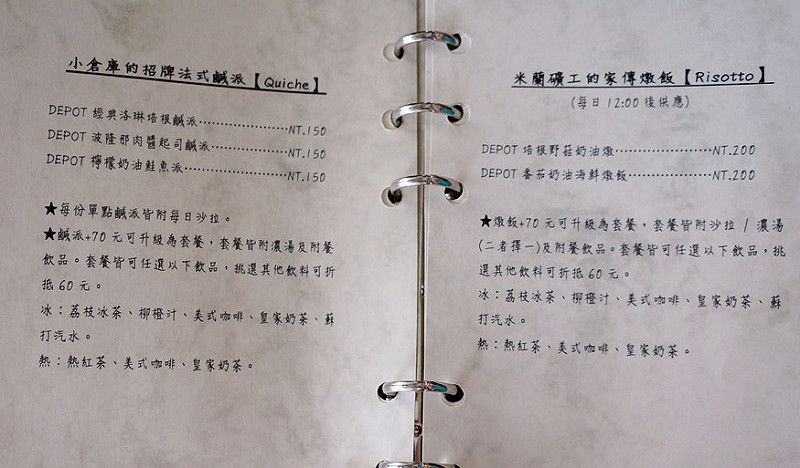 小倉庫的招牌法式鹹派【Quiche】
DEPOT 經典洛琳培根鹹派……………………NT.150
DEPOT 波隆那肉醬起司鹹派…………………NT.150
DEPOT 檸檬奶油鮭魚派………………………NT.150
★每份單點鹹派皆附每日沙拉。
★鹹派+70 元可升級為套餐，套餐皆附濃湯及附餐
飲品。套餐皆可任選以下飲品，挑選其他飲料可折
抵 60 元。
冰：荔枝冰茶、柳橙汁、美式咖啡、皇家奶茶、蘇
打汽水。
熱：熱紅茶、美式咖啡、皇家奶茶。
米蘭礦工的家傳燉飯【Risotto】
(每日 12:00 後供應)
DEPOT 培根野菇奶油燉…………………NT.200
DEPOT 番茄奶油海鮮燉飯………………NT.200
★燉飯+70 元可升級為套餐，套餐皆附沙拉 / 濃湯
(二者擇一)及附餐飲品。套餐皆可任選以下飲品，挑
選其他飲料可折抵 60 元。
冰：荔枝冰茶、柳橙汁、美式咖啡、皇家奶茶、蘇
打汽水。
熱：熱紅茶、美式咖啡、皇家奶茶。